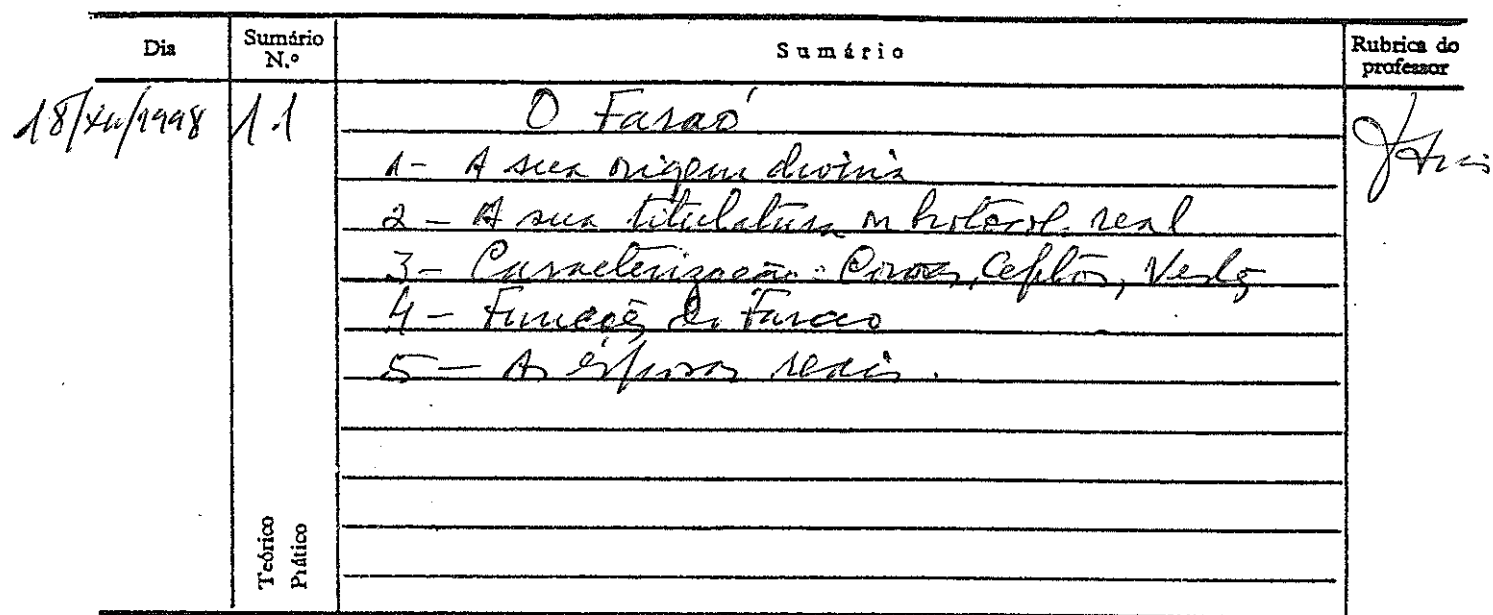 Dia
Sumário N.º
Sumário
Rubrica do professor
18/XII/1998
11
O Faraó
1- A sua origem divina
2- A sua titulatura ou protocolo real
3- Caracterização: Coroas, Ceptros, Vestes
4- Funções do Faraó
5- As esposas reais.
Teórico
Prático